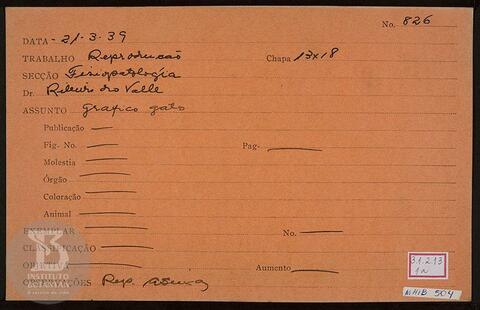 No. 826
DATA - 21-3-39
TRABALHO Reproducção Chapa 13x18
SECÇÃO Fisiopatologia
Dr. Ribeiro do Valle
ASSUNTO grafico gato
Publicação —
Fig. No. — Pag- —
Molestia —
Órgão —
Coloração —
Animal —
EXEMPLAR — No. —
CLASSIFICAÇÃO —
OBJETIVA — Aumento —
OBSERVAÇÕES Rep.
3.1.2.13
INSTITUTO
BUTANTAN
MHIB 504